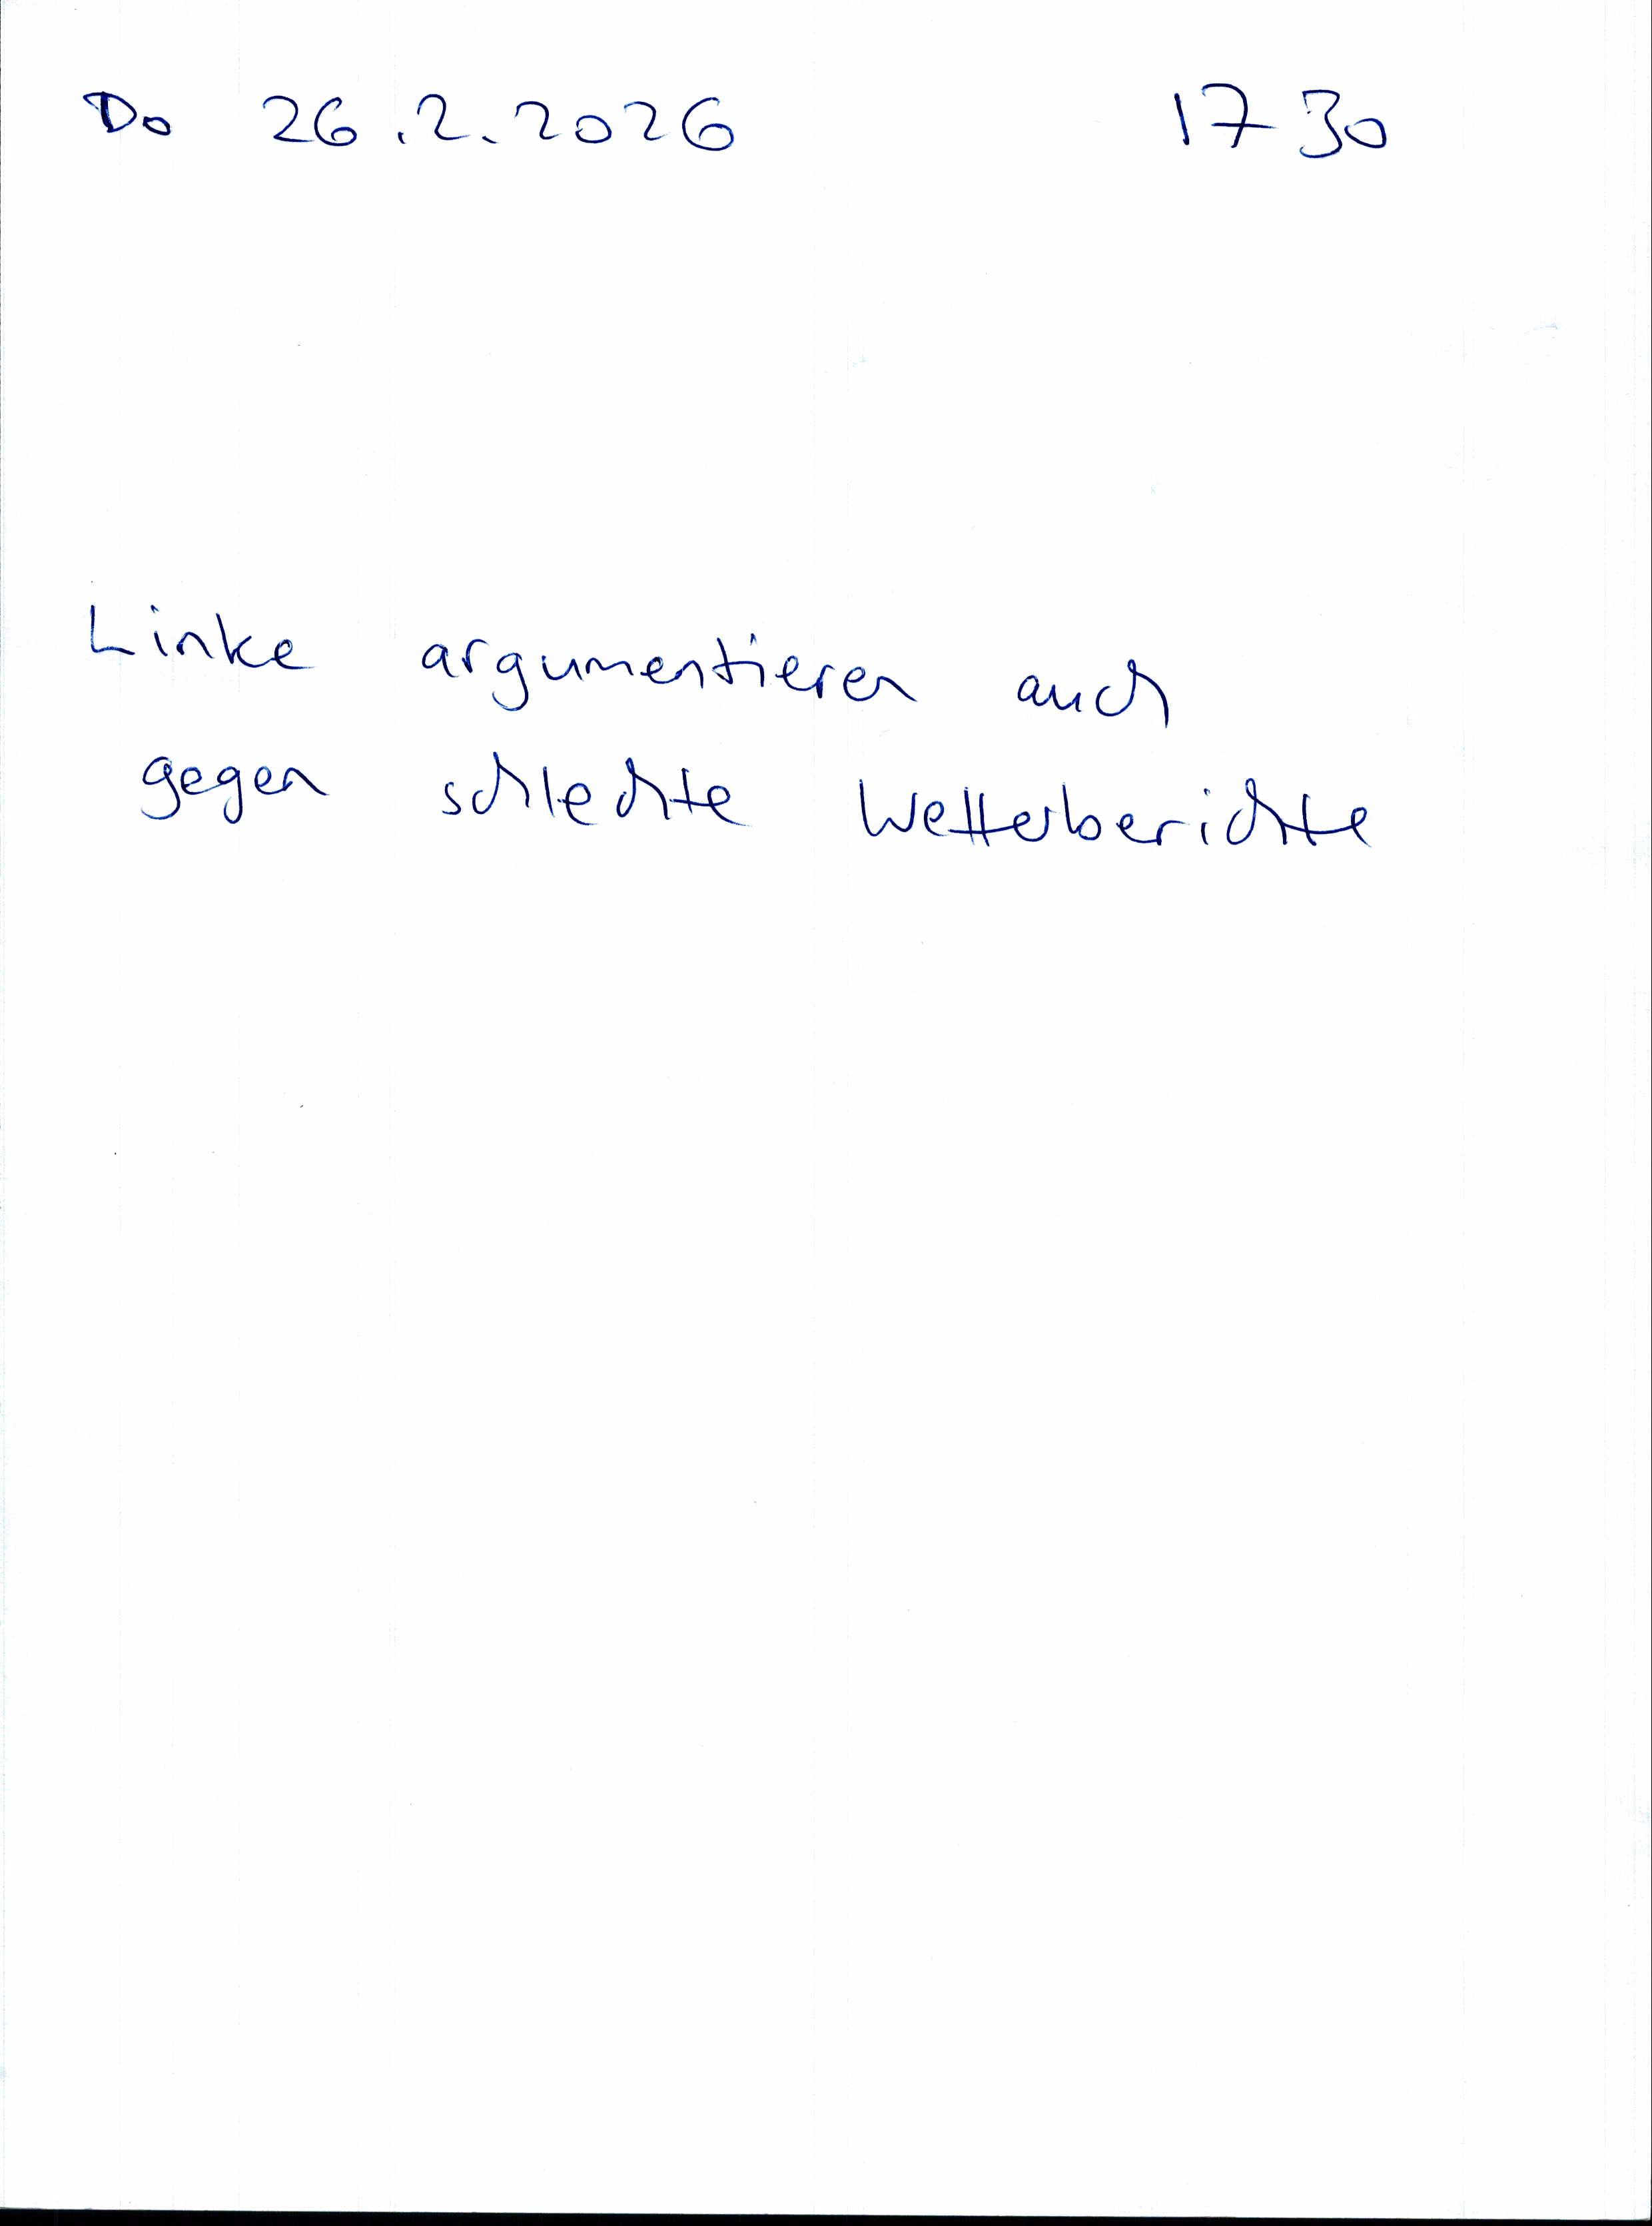 Do 26.2.2026 17 30
Linke argumentieren auch
gegen schlechte Wetterberichte